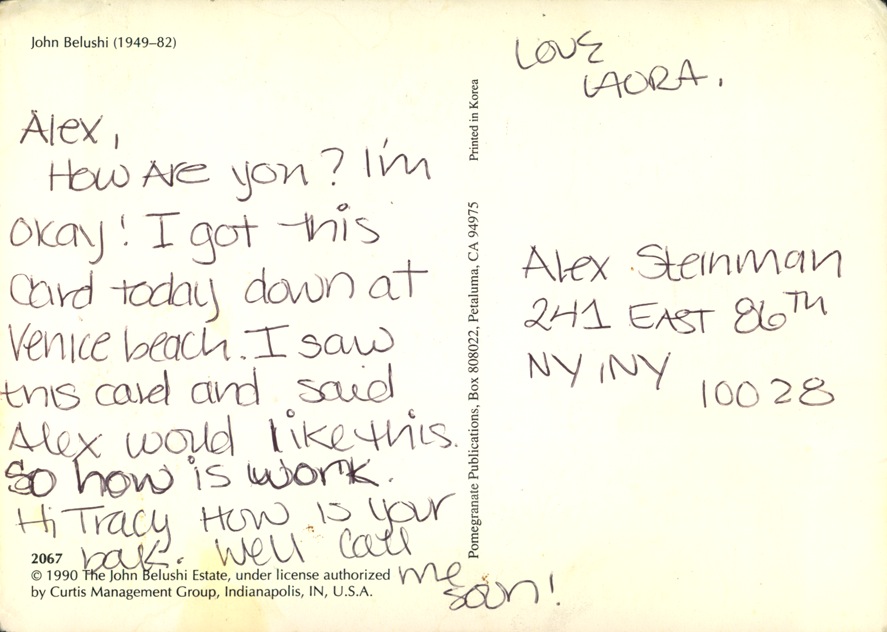 John Belushi (1949–82)
Alex,
How Are you? I'm
okay! I got this
Card today down at
Venice beach. I saw
this card and said
Alex would like this.
So how is work.
Hi Tracy How is your
bak. Well Call
me
soon!
2067
© 1990 The John Belushi Estate, under license authorized
by Curtis Management Group, Indianapolis, IN, U.S.A.
Pomegranate Publications, Box 808022, Petaluma, CA 94975
Printed in Korea
LOVE
LAURA.
Alex Steinman
241 EAST 86TH
NY, NY
10028